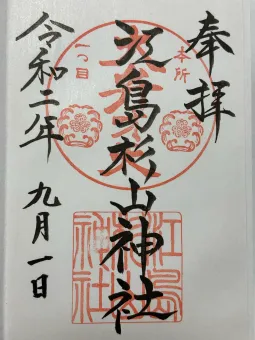 奉拝
本所
一つ目
江島杉山神社
江島
杉山
神社
令和二年
九月一日